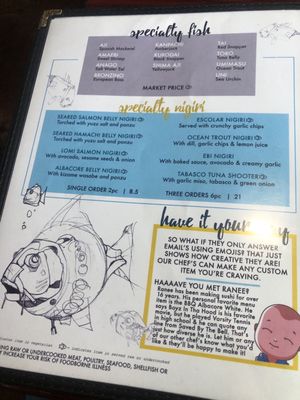 specialty fish
AJI KANPACHI TAI
Spanish Mackerel Amberjack Red Snapper
AMAEBI KURODAI TORO
Sweet Shrimp Black Snapper Tuna Belly
ANAGO SHIMA AJI UMIMASU
Salt Water Eel Yellowjack Ocean Trout
BRONZINO UNI
European Bass Sea Urchin
MARKET PRICE
specialty nigiri
SEARED SALMON BELLY NIGIRI ESCOLAR NIGIRI
Torched with yuzu salt and ponzu Served with crunchy garlic chips
SEARED HAMACHI BELLY NIGIRI OCEAN TROUT NIGIRI
Torched with yuzu salt and ponzu With dill, garlic chips & lemon juice
LOMI SALMON NIGIRI EBI NIGIRI
With avocado, sesame seeds & onion With baked sauce, avocado & creamy garlic
ALBACORE BELLY NIGIRI TABASCO TUNA SHOOTER
With kizame wasabe and ponzu With garlic miso, tabasco & green onion
SINGLE ORDER 2pc | 8.5 THREE ORDERS 6pc | 21
have it your way
SO WHAT IF THEY ONLY ANSWER
EMAIL'S USING EMOJIS? THAT JUST
SHOWS HOW CREATIVE THEY ARE!
OUR CHEF'S CAN MAKE ANY CUSTOM
ITEM YOU'RE CRAVING.
HAAAAVE YOU MET RANEE?
Ranee has been making sushi for over
16 years. His personal favorite menu
item is the BBQ Albacore White. He
says Boyz In Tha Hood is his favorite
movie, but he played Varsity Tennis
in high school & he can quote any
line from Saved By The Bell. That's
just how diverse he is. Let him or any
of our other chef's know what you'd
like & they'll be happy to make it!
indicates item is served raw or undercooked
ING RAW OR UNDERCOOKED MEAT, POULTRY, SEAFOOD, SHELLFISH OR
Y INCREASE YOUR RISK OF FOODBORNE ILLNESS